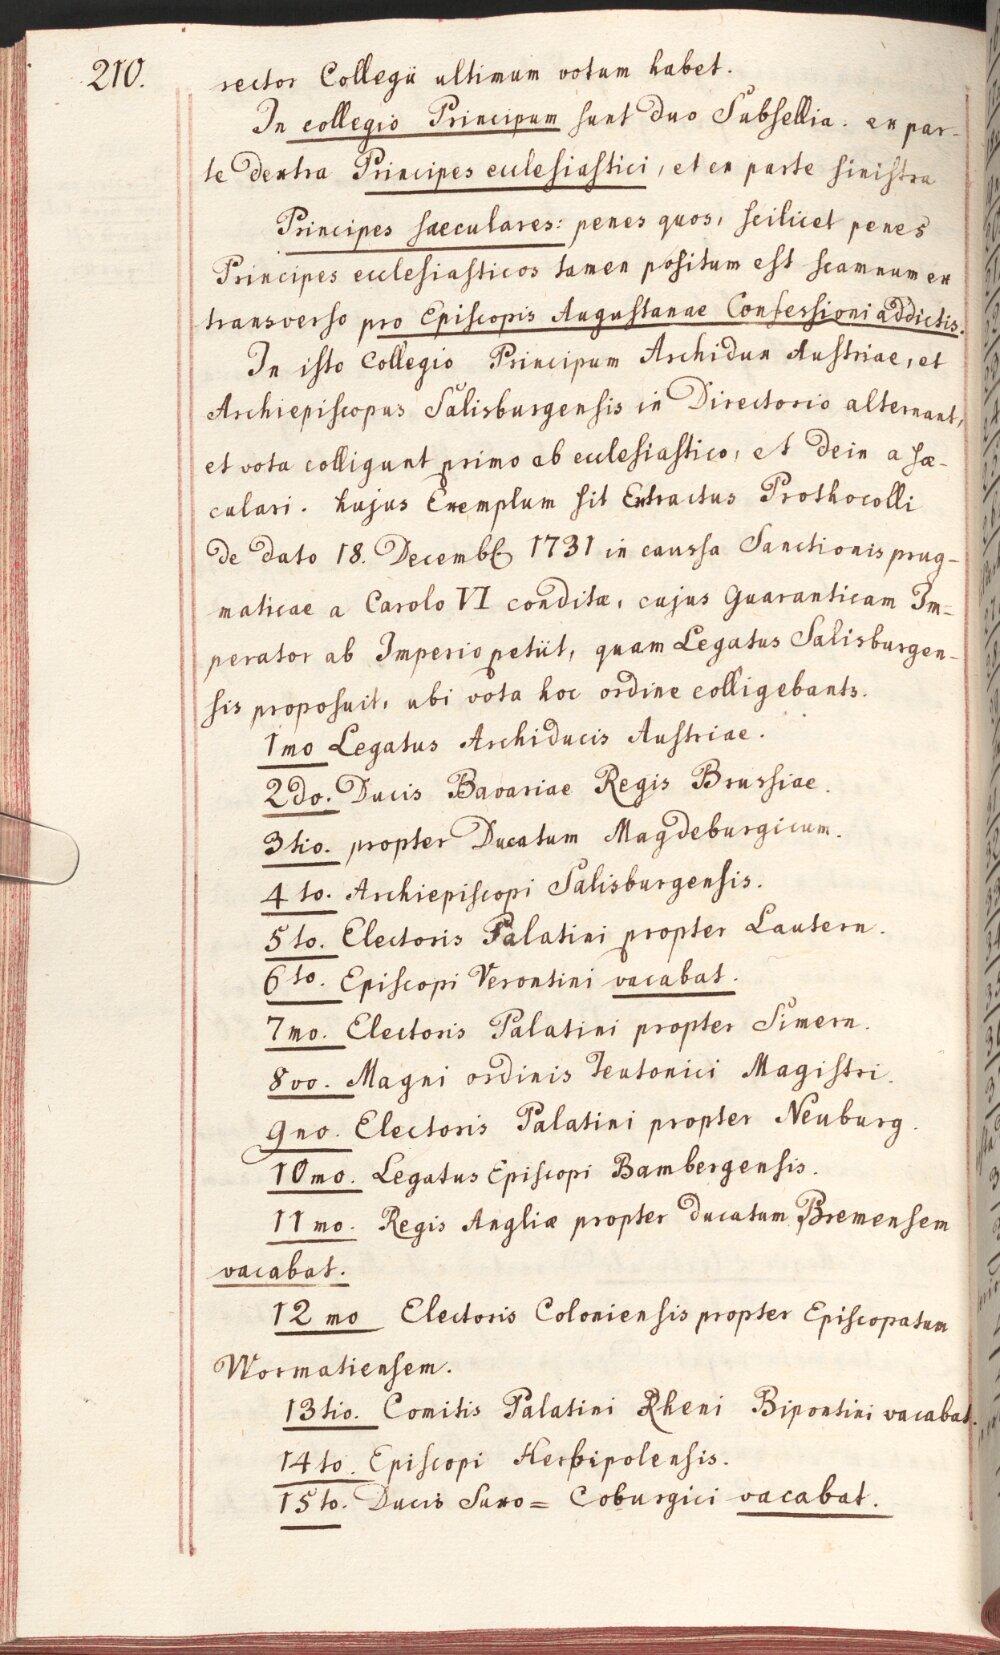 210.
rector Collegii ultimum votum habet.
In collegio Principum sunt duo Subsellia. ex par-
te dextra Principes ecclesiastici, et ex parte sinistra
Principes sæculares: penes quos, scilicet penes
Principes ecclesiasticos tamen positum est scamnum ex
transverso pro Episcopis Augustanae Confessioni addictis.
In isto Collegio Principum Archidux Austriae, et
Archiepiscopus Salisburgensis in Directorio alternant,
et vota colligunt primo ab ecclesiastico, et dein a sæ-
culari. hujus Exemplum sit Extractus Prothocolli
de dato 18. Decemb. 1731 in caussa Sanctionis prag-
maticae a Carolo VI conditæ, cujus Guaranticam Im-
perator ab Imperio petiit, quam Legatus Salisburgen-
sis proposuit, ubi vota hoc ordine colligebantr.
1mo Legatus Archiducis Austriae.
2do. Ducis Bavariae Regis Brussiae.
3tio. propter Ducatum Magdeburgicum.
4to. Archiepiscopi Salisburgensis.
5to. Electoris Palatini propter Lautern.
6to. Episcopi Verontini vacabat.
7mo. Electoris Palatini propter Simern.
8vo. Magni ordinis Teutonici Magistri.
9no. Electoris Palatini propter Neuburg.
10mo. Legatus Episcopi Bambergensis.
11mo. Regis Angliæ propter ducatum Bremensem
vacabat.
12mo Electoris Coloniensis propter Episcopatum
Wormatiensem.
13tio. Comitis Palatini Rheni Bipontini vacabat.
14to. Episcopi Herbipolensis.
15to. Ducis Saxo= Coburgici vacabat.